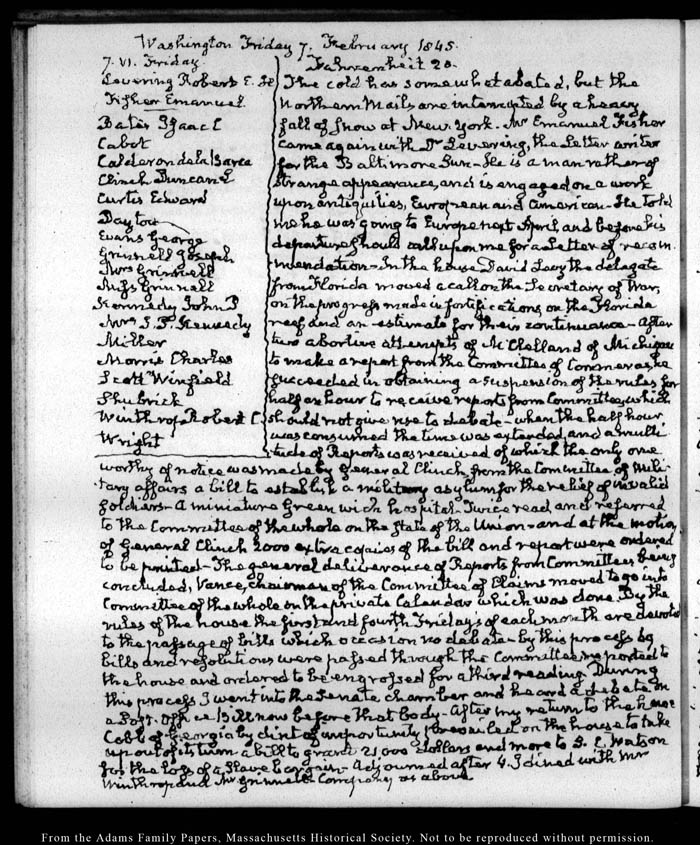 Washington Friday 7. February 1845.
7. VI. Friday.
Fahrenheit 28.
Levering Robert E. H
Fisher Emanuel
Bates Isaac C
Cabot
Calderon de la Barca
Clinch Duncan L
Curtis Edward
Dayton
Evans George
Grinnell Joseph
Mrs Grinnell
Miss Grinnell
Kennedy John P
Mrs J. P. Kennedy
Miller
Morris Charles
Scott Winfield
Shubrick
Winthrop Robert C
Wright
The cold has somewhat abated, but the
Northern Mails are interrupted by a heavy
fall of Snow at New York. Mr Emanuel Fisher
came again with Dr Levering, the Letter writer
for the Baltimore Sun—He is a man rather of
strange appearance, and is engaged on a work
upon antiquities, European and American—He told
me he was going to Europe next April, and before his
departure should call upon me for a Letter of recom
mendation—In the house David Levy the delegate
from Florida moved a call on the Secretary of War,
on the progress made in fortifications, on the Florida
reef, and an estimate for their continuance—After
two abortive attempts of McClelland of Michigan
to make a report from the Committee of Commerce, he
succeeded in obtaining a suspension of the rules for
half an hour to receive reports from Committees, which
should not give rise to debate—when the half hour
was consumed the time was extended, and a multi
tude of Reports was received of which the only one
worthy of notice was made by General Clinch, from the Committee of Mili
tary affairs a bill to establish a military asylum for the relief of invalid
soldiers—A miniature Greenwich hospital—Twice read and referred
to the Committee of the whole on the State of the Union—and at the motion
of General Clinch 2000 extra copies of the bill and report were ordered
to be printed—The general deliverance of Reports from Committees being
concluded, Vance, chairman of the Committee of Claims moved to go into
Committee of the whole on the private Calendar which was done. By the
rules of the house the first and fourth Fridays of each month are devoted
to the passage of bills which occasion no debate—by this process 69
bills and resolutions were passed through the Committee, reported to
the house and ordered to be engrossed for a third reading. During
this process I went into the Senate chamber and heard a debate on
a Post-Office Bill now before that body—After my return to the house
Cobb of Georgia by dint of importunity prevailed on the house to take
up out of its turn a bill to grant 21000 dollars and more to S. E. Watson
for the loss of a slave bargain—Adjourned after 4. I dined with Mr
Winthrop and Mr Grinnell—Company as above
From the Adams Family Papers, Massachusetts Historical Society. Not to be reproduced without permission.